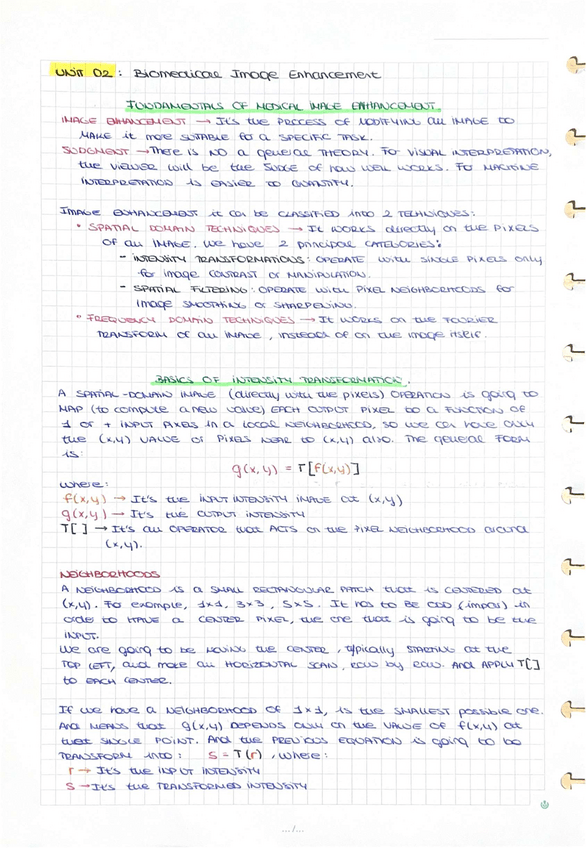 UNIT 02: Biomedical Image Enhancement
FUNDAMENTALS OF MEDICAL IMAGE ENHANCEMENT.
IMAGE ENHANCEMENT → It's the PROCESS OF MODIFYING an IMAGE to
MAKE it more SUITABLE for a SPECIFIC TASK.
JUDGMENT → There is NO a general THEORY. For VISUAL INTERPRETATION,
the VIEWER will be the JUDGE of how well works. For MACHINE
INTERPRETATION is EASIER to QUANTIFY.
IMAGE ENHANCEMENT it can be CLASSIFIED into 2 TECHNIQUES:
* SPATIAL DOMAIN TECHNIQUES → It works directly on the PIXELS
of an IMAGE. We have 2 principal CATEGORIES:
- INTENSITY TRANSFORMATIONS: OPERATE with SINGLE PIXELS only
for image CONTRAST or MANIPULATION.
- SPATIAL FILTERING: OPERATE with PIXEL NEIGHBORHOODS for
image SMOOTHING or SHARPENING.
* FREQUENCY DOMAIN TECHNIQUES → It works on the FOURIER
TRANSFORM of an IMAGE, instead of on the image itself.
BASICS OF INTENSITY TRANSFORMATION.
A SPATIAL-DOMAIN IMAGE (directly with the pixels) OPERATION is going to
MAP (to compute a new value) EACH OUTPUT PIXEL to a FUNCTION OF
1 or + INPUT PIXELS in a local NEIGHBORHOOD, so we can have only
the (x,y) VALUE or PIXELS NEAR to (x,y) also. The general FORM
is:
g(x,y) = T[f(x,y)]
where:
f(x,y) → It's the INPUT INTENSITY IMAGE at (x,y)
g(x,y) → It's the OUTPUT INTENSITY
T[ ] → It's an OPERATOR that ACTS on the PIXEL NEIGHBORHOOD around
(x,y).
NEIGHBORHOODS
A NEIGHBORHOOD is a SMALL RECTANGULAR PATCH that is CENTERED at
(x,y). For example, 1x1, 3x3, 5x5. It has to BE ODD (impar) in
order to HAVE a CENTER PIXEL, the one that is going to be the
INPUT.
We are going to be MOVING the CENTER, typically STARTING at the
TOP LEFT, and make an HORIZONTAL SCAN, ROW by ROW. And APPLY T[]
to EACH CENTER.
If we have a NEIGHBORHOOD OF 1x1, is the SMALLEST possible one.
And MEANS that g(x,y) DEPENDS only on the VALUE of f(x,y) at
that SINGLE POINT. And the PREVIOUS EQUATION is going to be
TRANSFORM INTO: s = T(r), where:
r → It's the INPUT INTENSITY
s → It's the TRANSFORMED INTENSITY
.../...